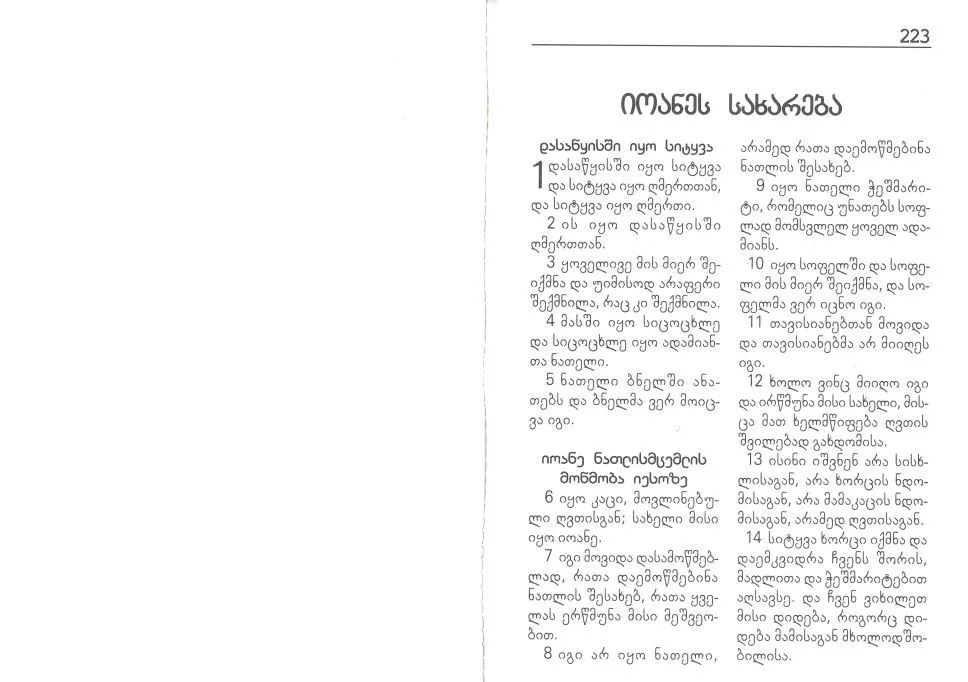 223
იოანეს სახარება
დასაწყისში იყო სიტყვა
1 დასაწყისში იყო სიტყვა
და სიტყვა იყო ღმერთთან,
და სიტყვა იყო ღმერთი.
2 ის იყო დასაწყისში
ღმერთთან.
3 ყოველივე მის მიერ შე-
იქმნა და უიმისოდ არაფერი
შექმნილა, რაც კი შექმნილა.
4 მასში იყო სიცოცხლე
და სიცოცხლე იყო ადამიან-
თა ნათელი.
5 ნათელი ბნელში ანა-
თებს და ბნელმა ვერ მოიც-
ვა იგი.
იოანე ნათლისმცემლის
მოწმობა იესოზე
6 იყო კაცი, მოვლინებუ-
ლი ღვთისგან; სახელი მისი
იყო იოანე.
7 იგი მოვიდა დასამოწმებ-
ლად, რათა დაემოწმებინა
ნათლის შესახებ, რათა ყვე-
ლას ერწმუნა მისი მეშვეო-
ბით.
8 იგი არ იყო ნათელი,
არამედ რათა დაემოწმებინა
ნათლის შესახებ.
9 იყო ნათელი ჭეშმარი-
ტი, რომელიც უნათებს სოფ-
ლად მომსვლელ ყოველ ადა-
მიანს.
10 იყო სოფელში და სოფე-
ლი მის მიერ შეიქმნა, და სო-
ფელმა ვერ იცნო იგი.
11 თავისიანებთან მოვიდა
და თავისიანებმა არ მიიღეს
იგი.
12 ხოლო ვინც მიიღო იგი
და ირწმუნა მისი სახელი, მის-
ცა მათ ხელმწიფება ღვთის
შვილებად გახდომისა.
13 ისინი იშვნენ არა სისხ-
ლისაგან, არა ხორცის ნდო-
მისაგან, არა მამაკაცის ნდო-
მისაგან, არამედ ღვთისაგან.
14 სიტყვა ხორცი იქმნა და
დაემკვიდრა ჩვენს შორის,
მადლითა და ჭეშმარიტებით
აღსავსე. და ჩვენ ვიხილეთ
მისი დიდება, როგორც დი-
დება მამისაგან მხოლოდშო-
ბილისა.